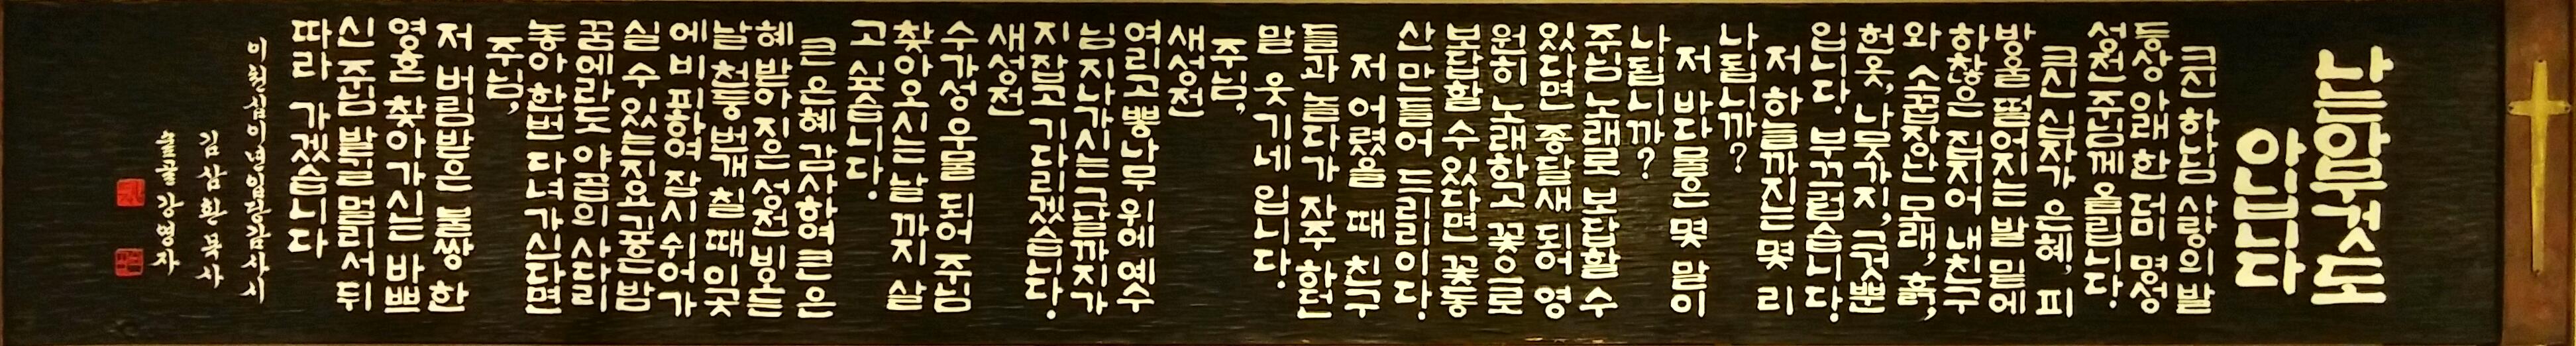 나는 아무것도
아닙니다
크신 하나님 사랑의 발
등상 아래 한 더미 명성
성전 주님께 올립니다.
크신 십자가 은혜, 피
방울 떨어지는 발 밑에
하찮은 집 지어 내 친구
와 소꿉장난 모래, 흙,
헌옷, 나뭇가지, 그것뿐
입니다. 부끄럽습니다.
저 하늘까진 몇 리
나 됩니까?
저 바다물은 몇 말이
나 됩니까?
주님 노래로 보답할 수
있다면 종달새 되어 영
원히 노래하고 꽃으로
보답할 수 있다면 꽃동
산 만들어 드리리이다.
저 어렸을 때 친구
들과 놀다가 자주 하던
말 웃기네 입니다.
주님,
새성전
여리고 뽕나무 위에 예수
님 지나가시는 그날까지 가
지 잡고 기다리겠습니다.
새성전
수가성 우물 되어 주님
찾아오시는 날까지 살
고 싶습니다.
큰 은혜 감사하여 큰 은
혜 받아 지은 성전 비오는
날 천둥 번개 칠 때 이곳
에 비 피하여 잠시 쉬어 가
실 수 있는지요 깊은 밤
꿈에라도 야곱의 사다리
놓아 한번 다녀 가신다면
주님,
저 버림받은 불쌍한
영혼 찾아가시는 바쁘
신 주님 발길 멀리서 뒤
따라 가겠습니다
이천십이년 입당감사시
김삼환 목사
강명자